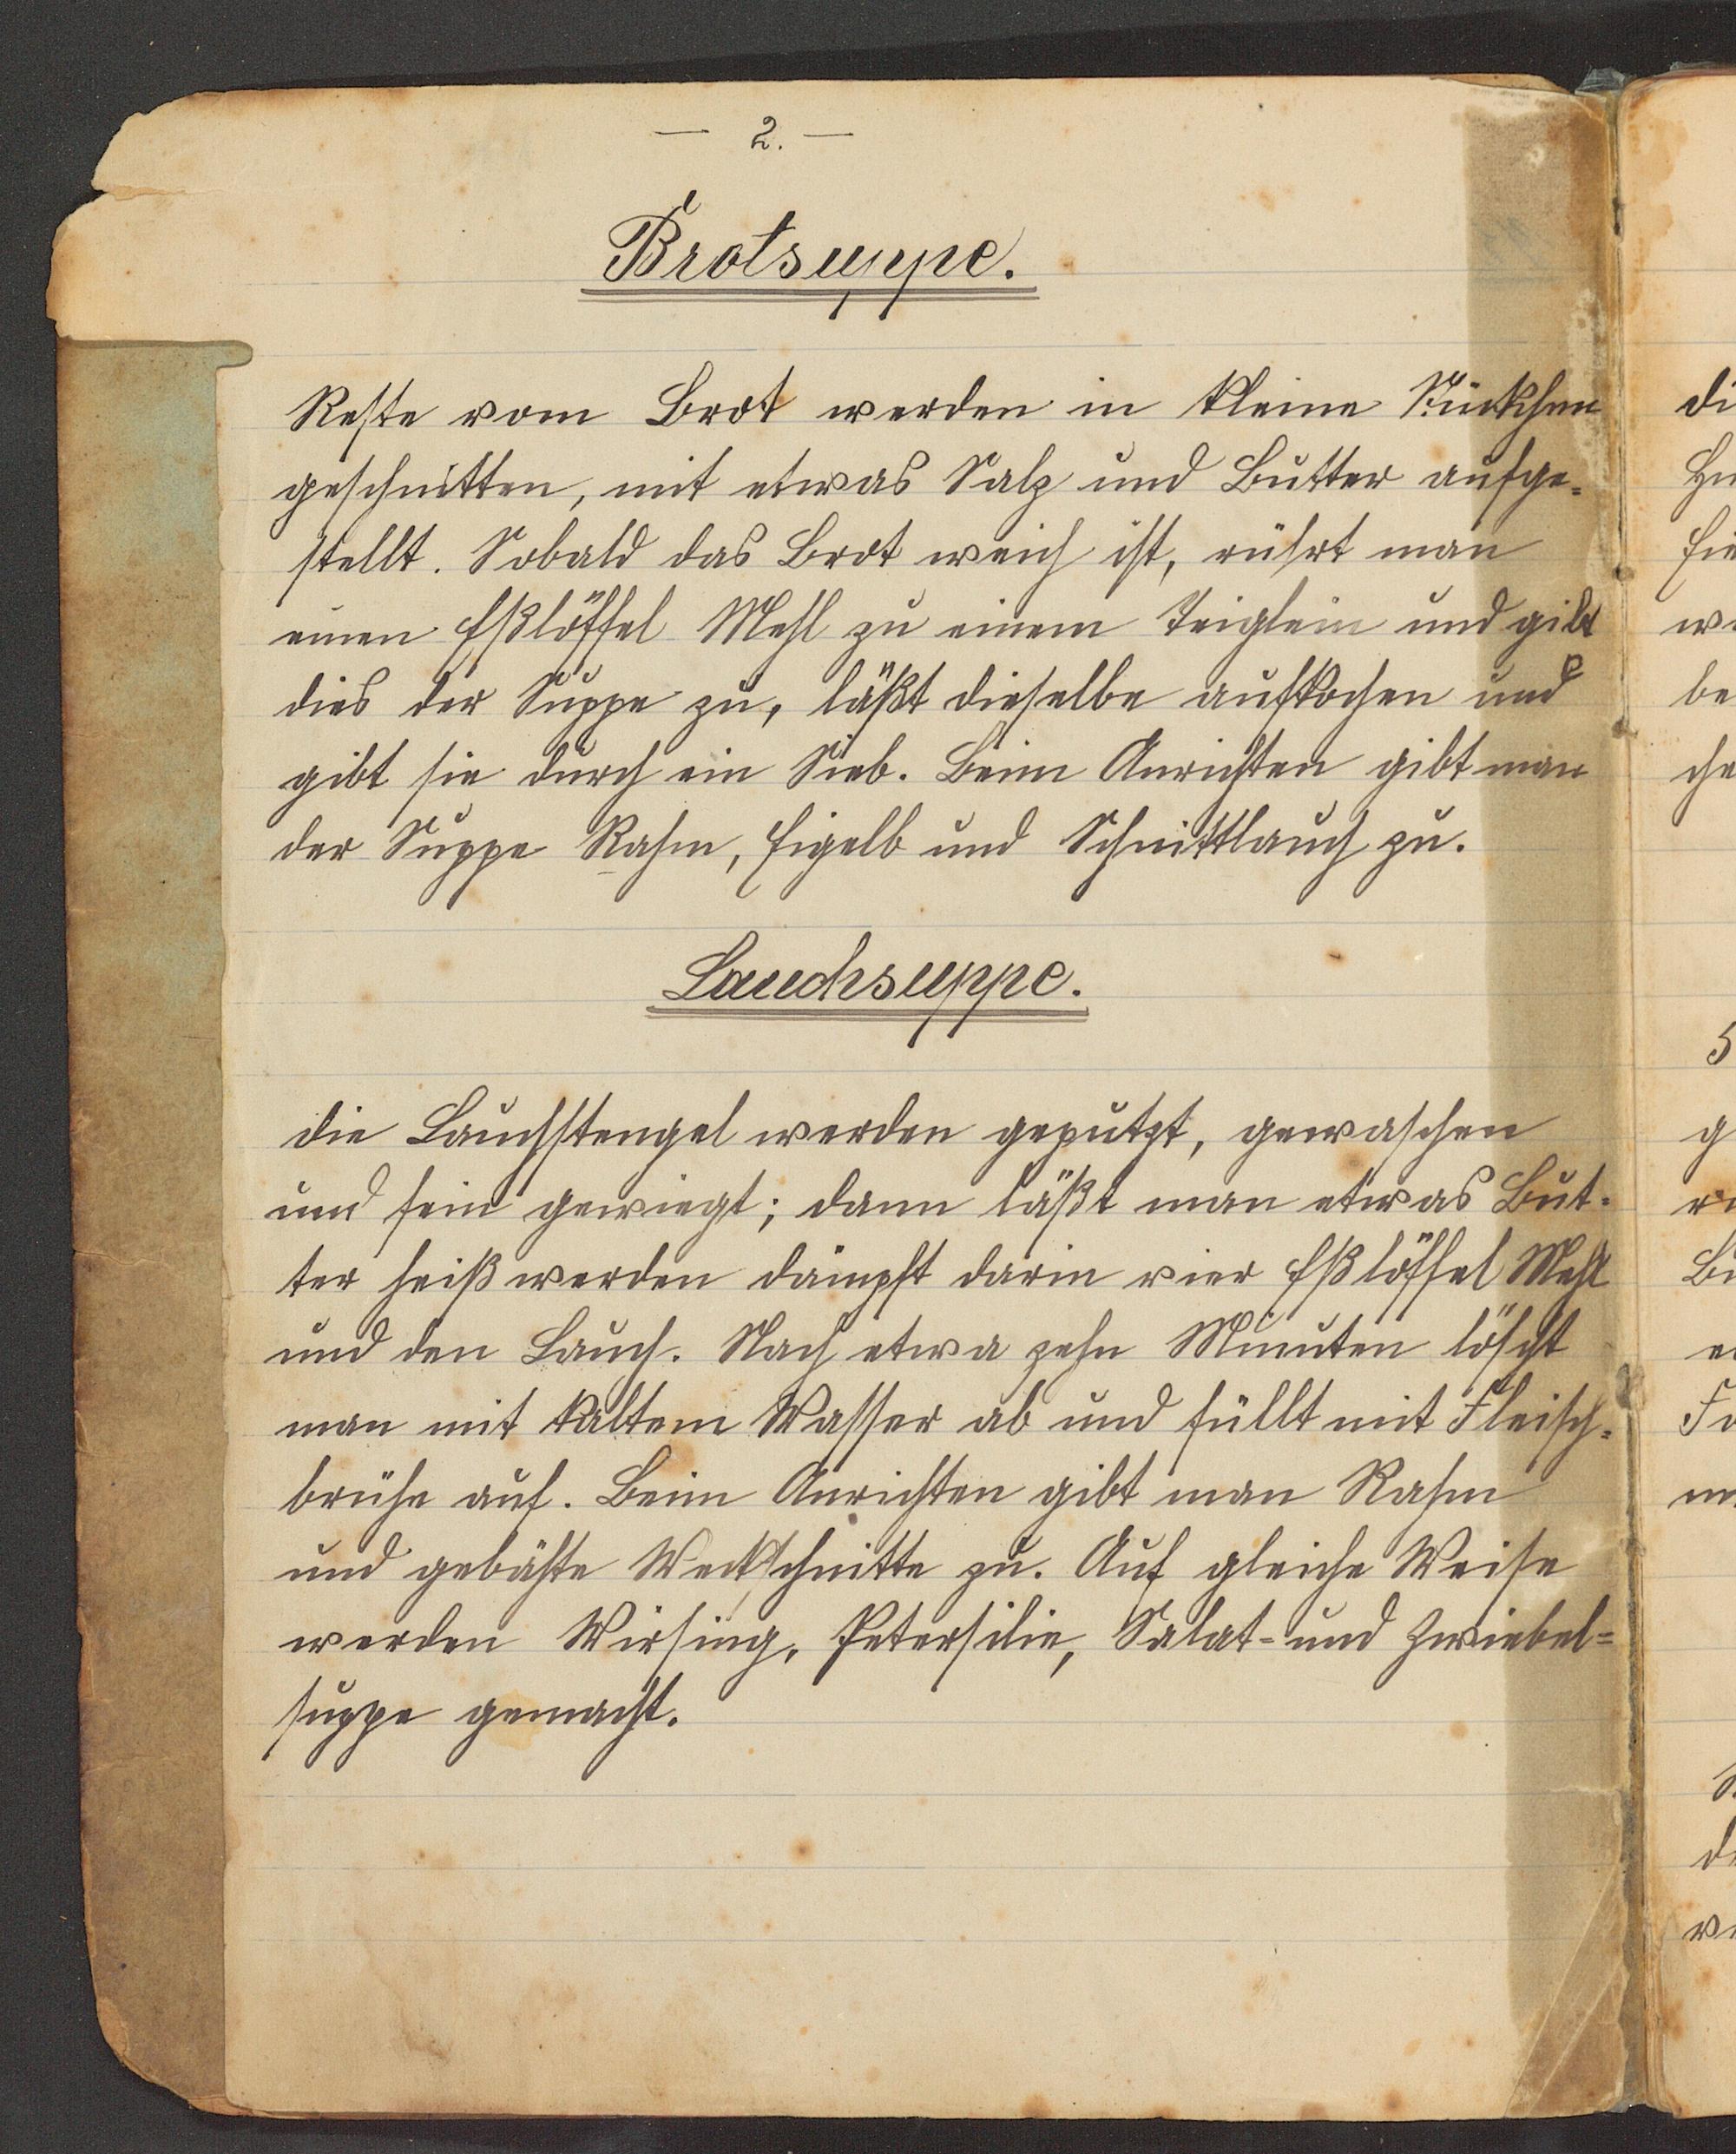 — 2. —
Brotsuppe.
Reste vom Brot werden in kleine Stückchen
geschnitten, mit etwas Salz und Butter aufge-
stellt. Sobald das Brot weich ist, rührt man
einen Eßlöffel Mehl zu einem Teiglein und gibt
dies der Suppe zu, läßt dieselbe aufkochen und
gibt sie durch ein Sieb. Beim Anrichten gibt man
der Suppe Rahm, Eigelb und Schnittlauch zu.
Lauchsuppe.
die Lauchstengel werden geputzt, gewaschen
und fein gewiegt; dann läßt man etwas But-
ter heiß werden dämpft darin vier Eßlöffel Mehl
und den Lauch. Nach etwa zehn Minuten löscht
man mit kaltem Wasser ab und füllt mit Fleisch-
brühe auf. Beim Anrichten gibt man Rahm
und gebähte Weckschnitte zu. Auf gleiche Weise
werden Wirsing, Petersilie, Salat- und Zwiebel-
suppe gemacht.